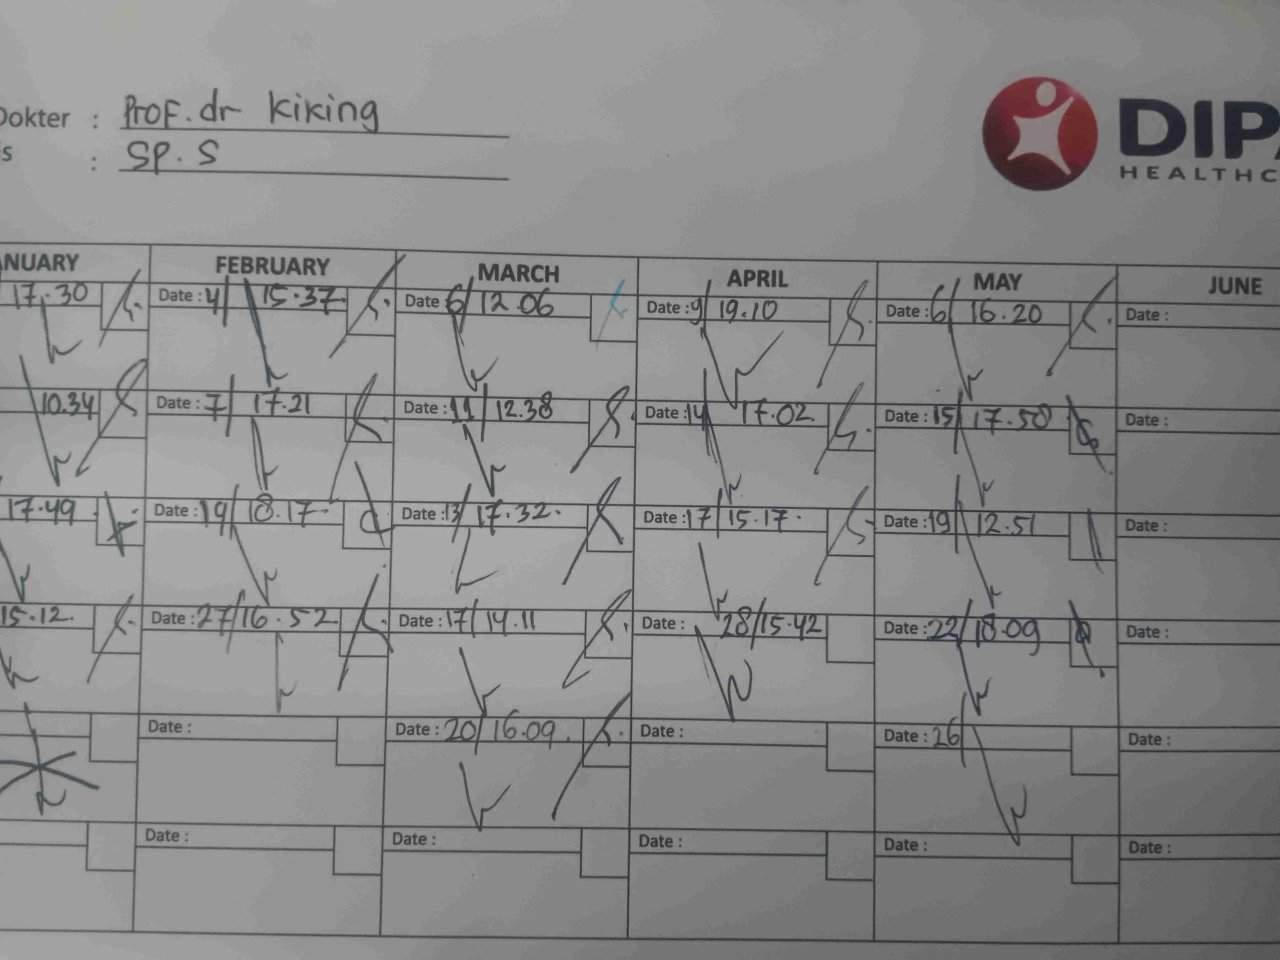 Dokter : Prof. dr Kiking
s : SP. S
DIPA
HEALTHC
NUARY FEBRUARY MARCH APRIL MAY JUNE
17.30 Date : 4/ 15.37 Date 6/ 12.06 Date : 9/ 19.10 Date : 6/ 16.20 Date :
10.34 Date : 7/ 17.21 Date : 11/ 12.38 Date : 14/ 17.02 Date : 15/ 17.50 Date :
17.49 Date : 19/ 18.17 Date : 13/ 17.32 Date : 17/ 15.17 Date : 19/ 12.51 Date :
15.12 Date : 27/ 16.52 Date : 17/ 14.11 Date : 28/15.42 Date : 22/ 18.09 Date :
Date : Date : 20/ 16.09 Date : Date : 26/ Date :
Date : Date : Date : Date : Date :